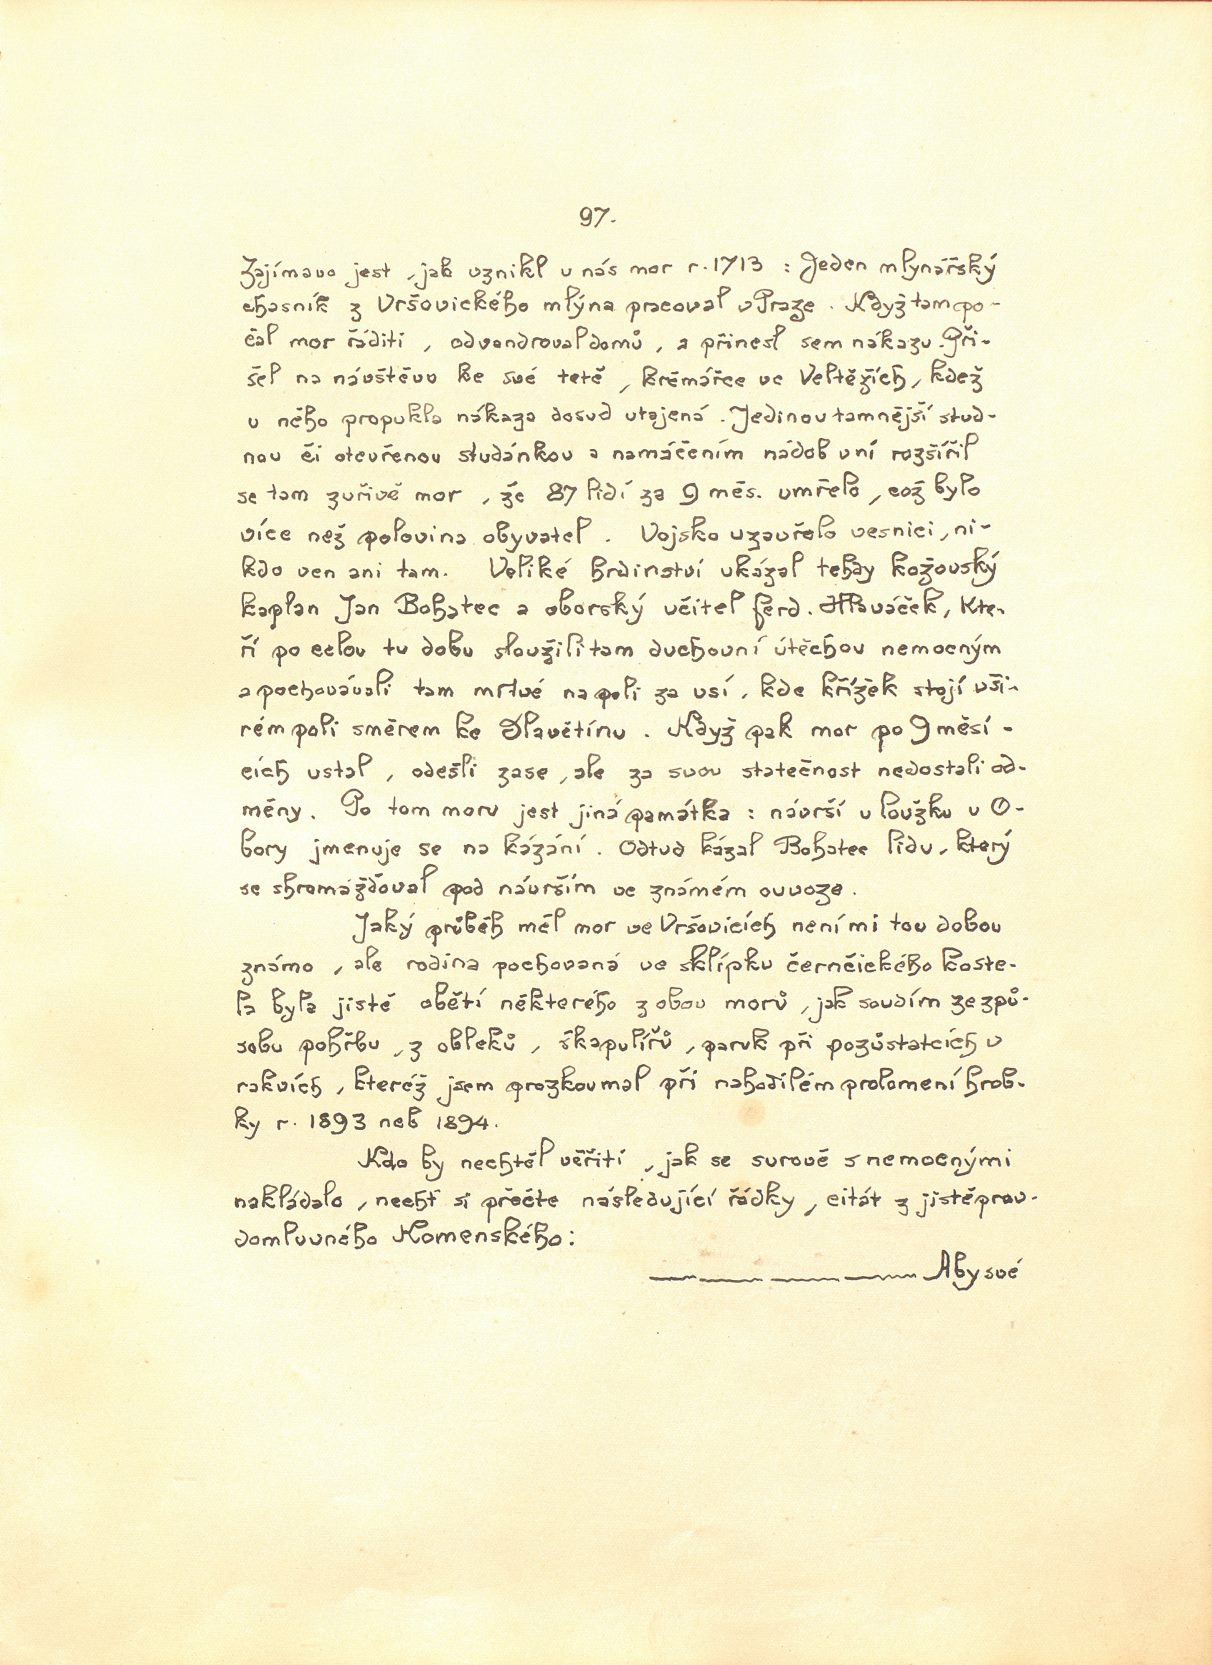 97.
Zajímavo jest, jak vznikl u nás mor r. 1713 : Jeden mlynářský
chasník z Vršovického mlýna pracoval v Praze. Když tam po-
čal mor řáditi, odvandroval domů, a přinesl sem nákazu. Při-
šel na návštěvu ke své tetě, krčmářce ve Veltěžích, kdež
u něho propukla nákaza dosud utajená. Jedinou tamnější stud-
nou či otevřenou studánkou a namáčením nádob v ní rozšířil
se tam zuřivě mor, že 87 lidí za 9 měs. umřelo, což bylo
více než polovina obyvatel. Vojsko uzavřelo vesnici, ni-
kdo ven ani tam. Veliké hrdinství ukázal tehdy kožovský
kaplan Jan Bohatec a oborský učitel ferd. Hlaváček, kte-
ří po celou tu dobu sloužili tam duchovní útěchou nemocným
a pochovávali tam mrtvé na poli za vsí, kde křížek stojí v ši-
rém poli směrem ke Slavětínu. Když pak mor po 9 měsí-
cích ustal, odešli zase, ale za svou statečnost nedostali od-
měny. Po tom moru jest jiná památka : návrší u loužku v O-
bory jmenuje se na kázání. Odtud kázal Bohatec lidu, který
se shromážďoval pod návrším ve známém ouvoze.
Jaký průběh měl mor ve Vršovicích není mi tou dobou
známo, ale rodina pochovaná ve sklípku černčického koste-
la byla jistě obětí některého z obou morů, jak soudím ze způ-
sobu pohřbu, z obleků, škapulířů, paruk při pozůstatcích v
rakvích, kteréž jsem prozkoumal při nahodilém prolomení hrob-
ky r. 1893 neb 1894.
Kdo by nechtěl věřiti, jak se surově s nemocnými
nakládalo, nechť si přečte následující řádky, citát z jistě prav-
domluvného Komenského:
Aby své